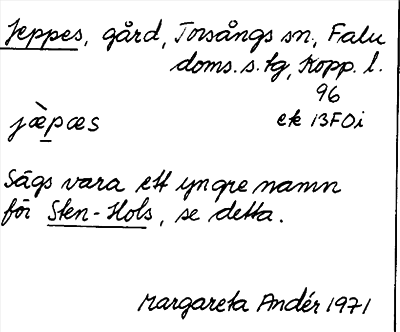 Jeppes, gård, Torsångs sn, Falu
doms. s. tg, Kopp. l.
96
jæ̀pæs ek 13F0i
Sägs vara ett yngre namn
för Sten-Hols, se detta.
Margareta Andér 1971